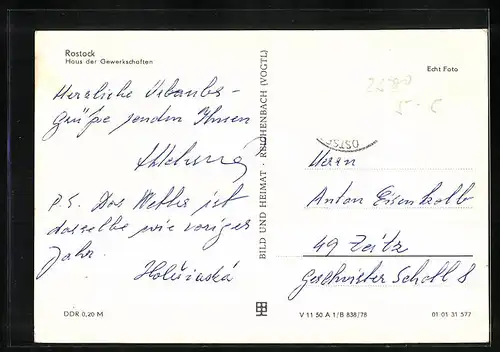 Rostock
Haus der Gewerkschaften
Herzliche Urlaubs-
grüße senden Ihnen
P.S. Das Wetter ist
dasselbe wie voriges
Jahr.
DDR 0,20 M
BILD UND HEIMAT · REICHENBACH (VOGTL)
Echt Foto
OSTS
Herrn
Anton Eisenkolb
49 Zeitz
Geschwister Scholl 8
V 11 50 A 1/B 838/78
01 01 31 577